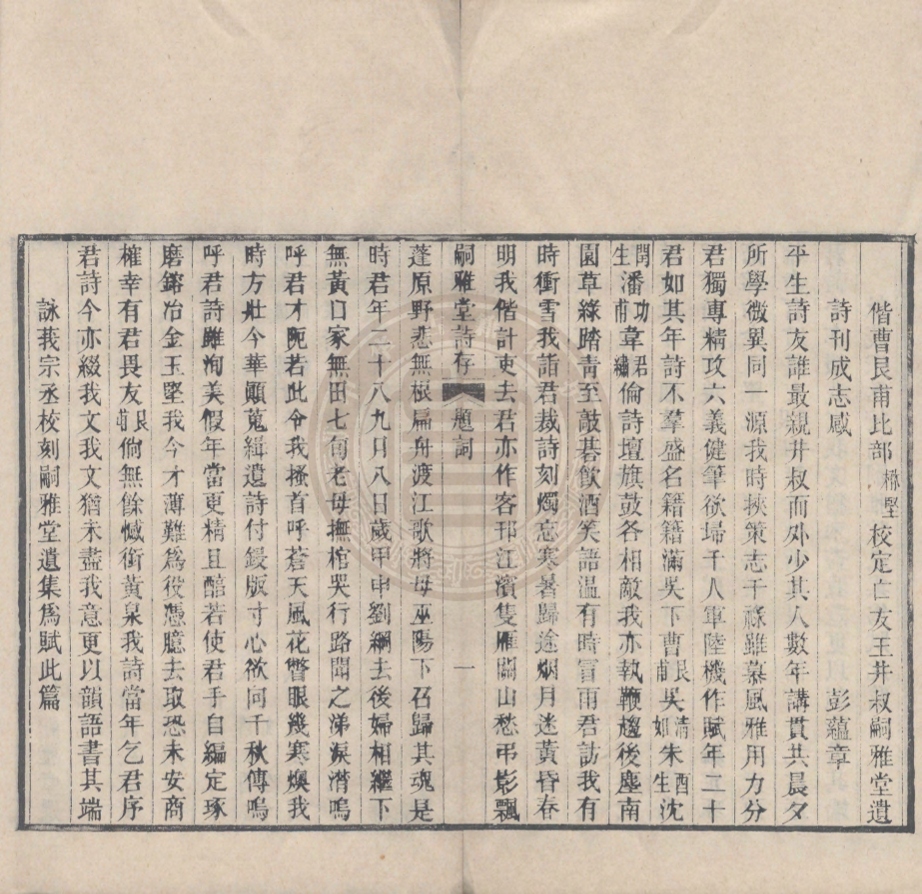 偕曹艮甫比部楙堅校定亡友王井叔嗣雅堂遺
詩刊成志感 彭蘊章
平生詩友誰最親井叔而外少其人數年講貫共晨夕
所學微異同一源我時挾策志干祿雖慕風雅用力分
君獨專精攻六義健筆欲埽千人軍陸機作賦年二十
君如其年詩不羣盛名籍籍滿吳下曹艮甫吳清如朱酉生沈
閏生潘功甫韋君繡倫詩壇旗鼓各相敵我亦執鞭趨後塵南
園草綠踏青至敲碁飲酒笑語温有時冒雨君訪我有
時衝雪我詣君裁詩刻燭忘寒暑歸途烟月迷黃昏春
明我偕計吏去君亦作客邗江濱隻雁關山愁弔影飄
嗣雅堂詩存 題詞 一
蓬原野悲無根扁舟渡江歌將母巫陽下召歸其魂是
時君年二十八九月八日歲甲申劉綱去後婦相繼下
無黃口家無田七旬老母撫棺哭行路聞之涕淚潸嗚
呼君才阨若此令我搔首呼蒼天風花瞥眼幾寒燠我
時方壯今華顚蒐緝遺詩付鋟版寸心欲向千秋傳嗚
呼君詩雖洵美假年當更精且醇若使君手自編定琢
磨鎔冶金玉堅我今才薄難爲役憑臆去取恐未安商
榷幸有君畏友艮甫倘無餘憾銜黃泉我詩當年乞君序
君詩今亦綴我文我文猶未盡我意更以韻語書其端
詠莪宗丞校刻嗣雅堂遺集爲賦此篇